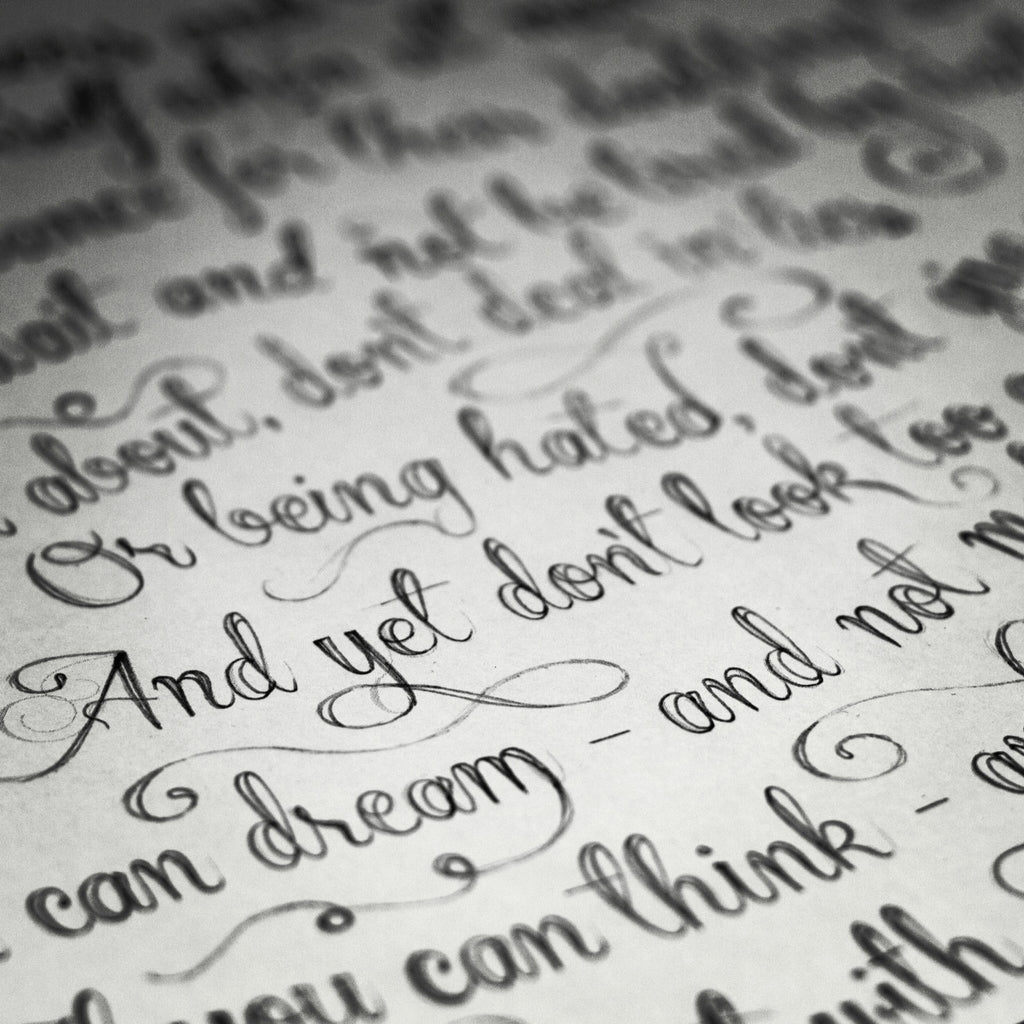 for them
wait and not be
about, don't deal in
Or being hated, don't
And yet don't look too
can dream — and not
you can think —
with